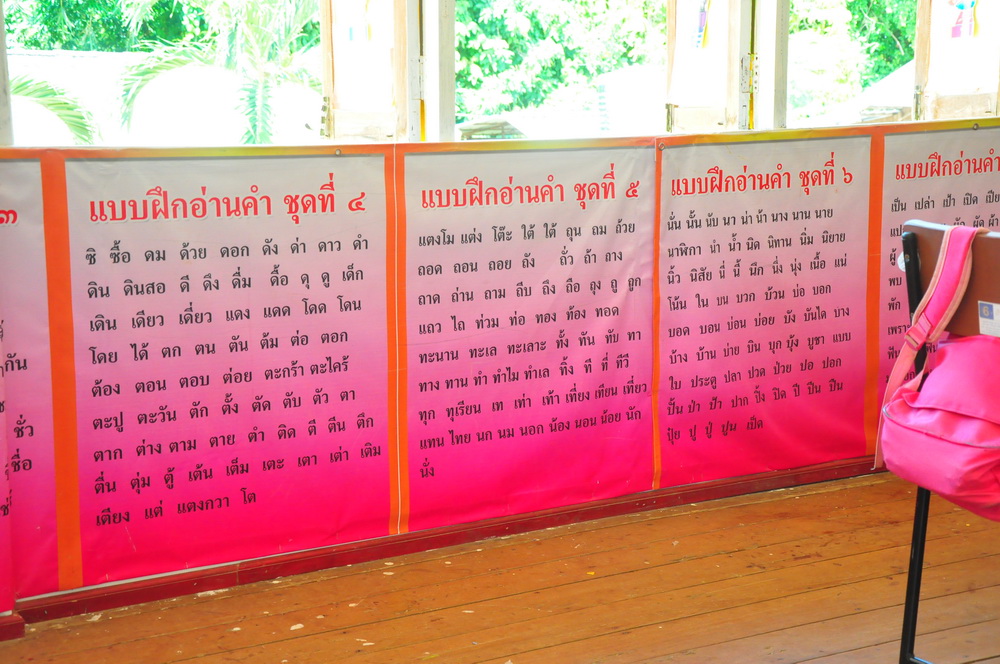 ๓
กัน
ชั่ว
ชื่อ
แบบฝึกอ่านคำ ชุดที่ ๔
ซิ ซื้อ ดม ด้วย ดอก ดัง ด่า ดาว ดำ
ดิน ดินสอ ดี ดึง ดื่ม ดื้อ ดุ ดู เด็ก
เดิน เดียว เดี่ยว แดง แดด โดด โดน
โดย ได้ ตก ตน ตัน ต้ม ต่อ ตอก
ต้อง ตอน ตอบ ต่อย ตะกร้า ตะไคร้
ตะปู ตะวัน ตัก ตั้ง ตัด ตับ ตัว ตา
ตาก ต่าง ตาม ตาย ตำ ติด ตี ตีน ตึก
ตื่น ตุ่ม ตู้ เต้น เต็ม เตะ เตา เต่า เติม
เตียง แต่ แตงกวา โต
แบบฝึกอ่านคำ ชุดที่ ๕
แตงโม แต่ง โต๊ะ ใต้ ใต้ ถุน ถม ถ้วย
ถอด ถอน ถอย ถัง ถั่ว ถ้า ถาง
ถาด ถ่าน ถาม ถีบ ถึง ถือ ถุง ถู ถูก
แถว ไถ ท่วม ท่อ ทอง ท้อง ทอด
ทะนาน ทะเล ทะเลาะ ทั้ง ทัน ทับ ทา
ทาง ทาน ทำ ทำไม ทำเล ทิ้ง ที ที่ ทีวี
ทุก ทุเรียน เท เท่า เท้า เที่ยง เทียน เที่ยว
แทน ไทย นก นม นอก น้อง นอน น้อย นัก
นั่ง
แบบฝึกอ่านคำ ชุดที่ ๖
นั่น นั้น นับ นา น่า น้า นาง นาน นาย
นาฬิกา นำ น้ำ นิด นิทาน นิ่ม นิยาย
นิ้ว นิสัย นี่ นี้ นึก นึ่ง นุ่ง เนื้อ แน่
โน้น ใน บน บวก บ้วน บ่อ บอก
บอด บอน บ่อน บ่อย บัง บันได บาง
บ้าง บ้าน บ่าย บิน บุก บุ้ง บูชา แบบ
ใบ ประตู ปลา ปวด ป่วย ปอ ปอก
ปั้น ป่า ป้า ปาก ปิ้ง ปิด ปี ปีน ปืน
ปุ๋ย ปู ปู่ ปูน เป็ด
แบบฝึกอ่านคำ
เป็น เปล่า เป่า เปิด
ผัก ผัด ผ้า
ผู้
พบ
พัก